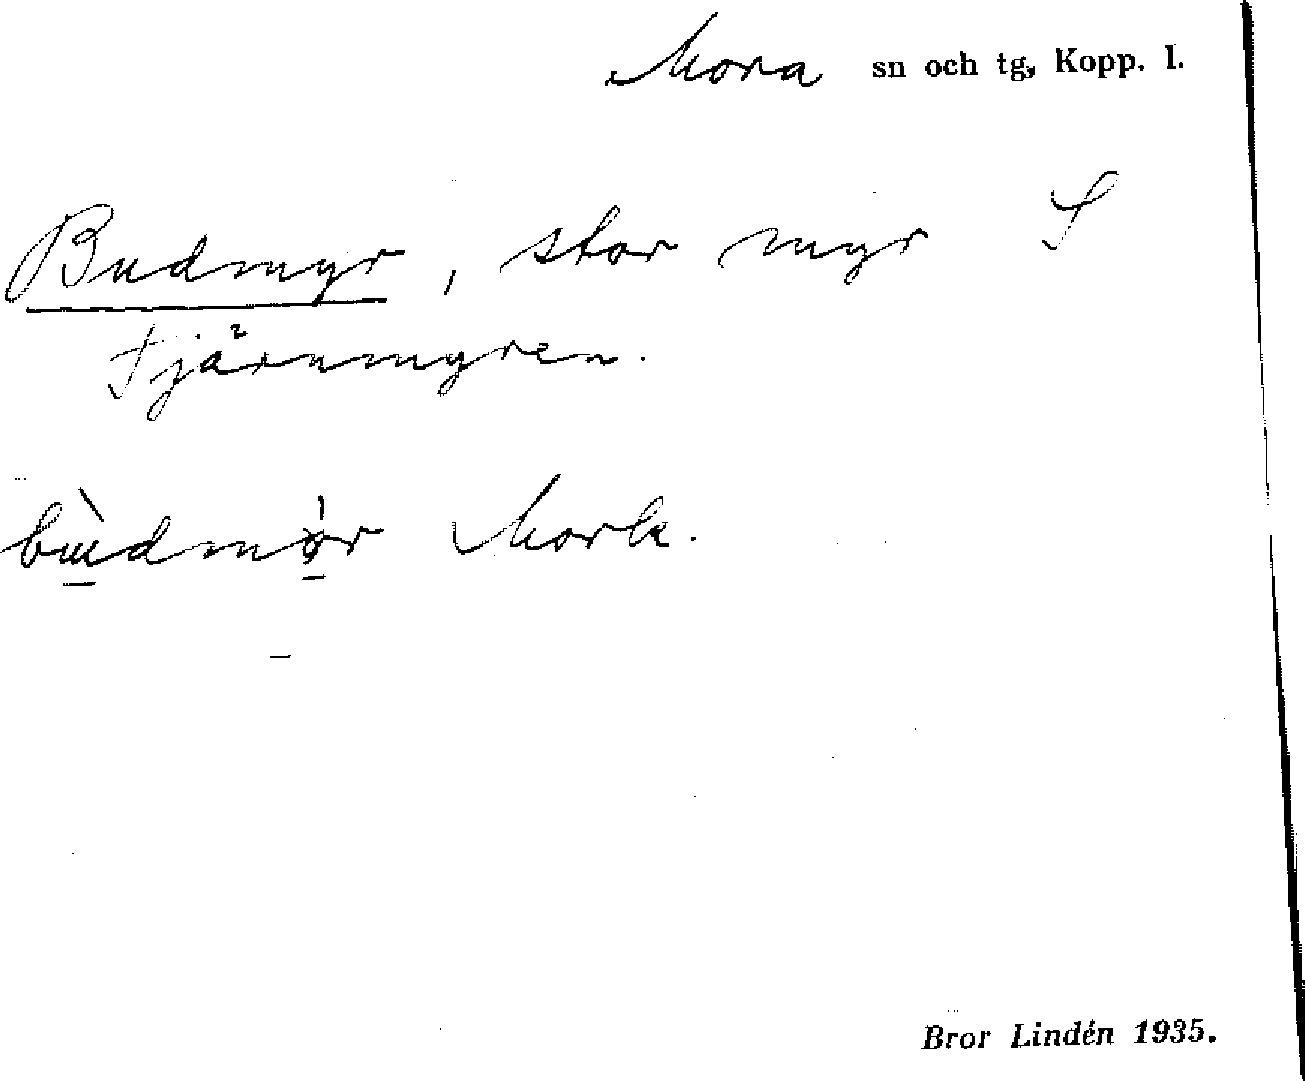 Mora sn och tg, Kopp. l.
Budmyr, stor myr S
Tjärnmyren.
Mork.
Bror Lindén 1935.